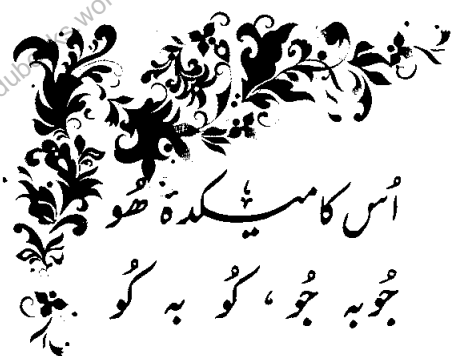 اُس کا میکدۂ ھُو
جُو بہ جُو ، کُو بہ کُو